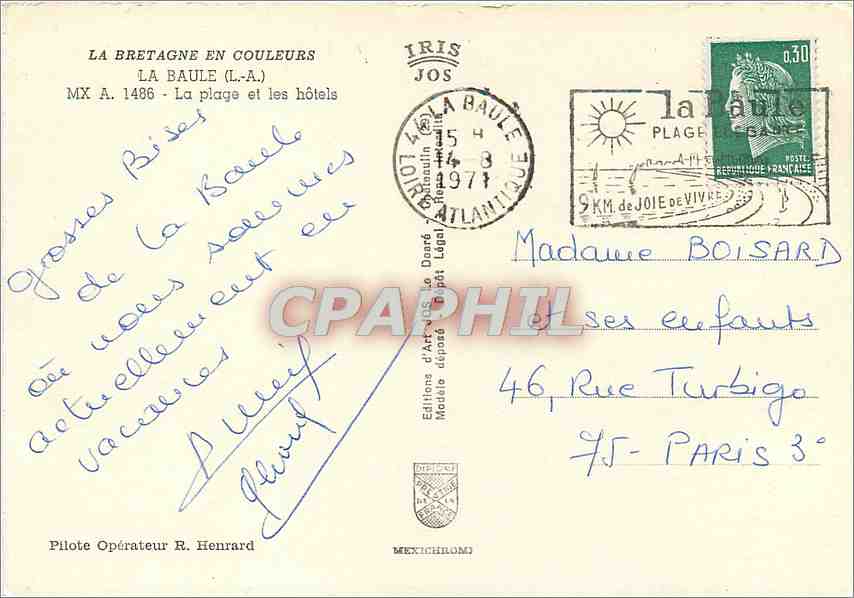 LA BRETAGNE EN COULEURS
LA BAULE (L.-A.)
MX A. 1486 - La plage et les hôtels
IRIS
JOS
44 LA BAULE
15 H
14-8
1971
LOIRE ATLANTIQUE
la Baule
PLAGE ELEGANTE
9 KM. de JOIE DE VIVRE
0,30
POSTES
REPUBLIQUE FRANÇAISE
grosses Bises
de la Baule
où nous sommes
actuellement en
vacances
Madame BOISARD
et ses enfants
46, Rue Turbigo
75- PARIS 3°
Editions d'Art JOS Le Doaré - Châteaulin (29)
Modèle déposé - Dépôt Légal - Repr. Interdite
CPAPHIL
DIPLOME
PRESTIGE
DE LA
FRANCE
Pilote Opérateur R. Henrard
MEXICHROME